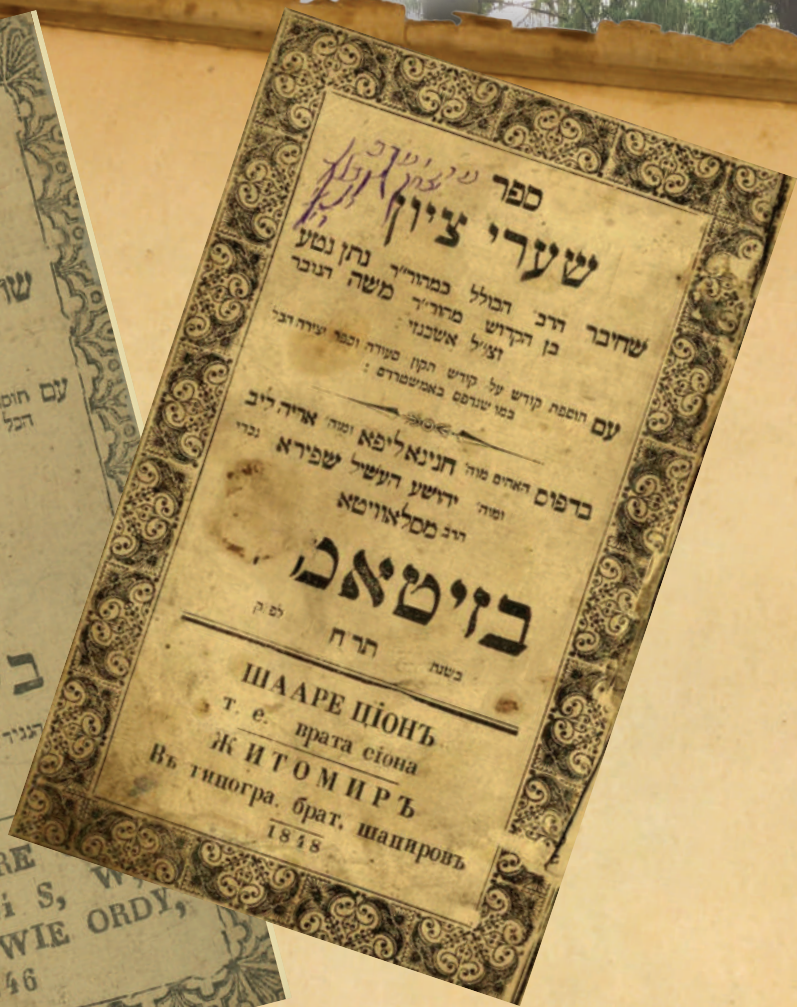 ספר
שערי ציון
שחיבר הרב הכולל כמהור״ר נתן נטע
בן הקדוש מהור״ר משה הנובר
זצ״ל אשכנזי :
עם הוספת קודש על קודש תקון סעודה וספר יצירה הכל
כמו שנדפס באמשטרדם :
בדפוס האחים מוה׳ חנינא ליפא ומוה׳ אריה ליב
ומוה׳ יהושע העשיל שפירא נכדי
הרב מסלאוויטא
בזיטאמ
בשנת תרח לפ״ק
ШААРЕ ЦІОНЪ
т. е. врата сіона
ЖИТОМИРЪ
Въ типогра. брат. шапировъ
1848
שע
עם
הכל
RE
i S, W,
WIE ORDY,
46